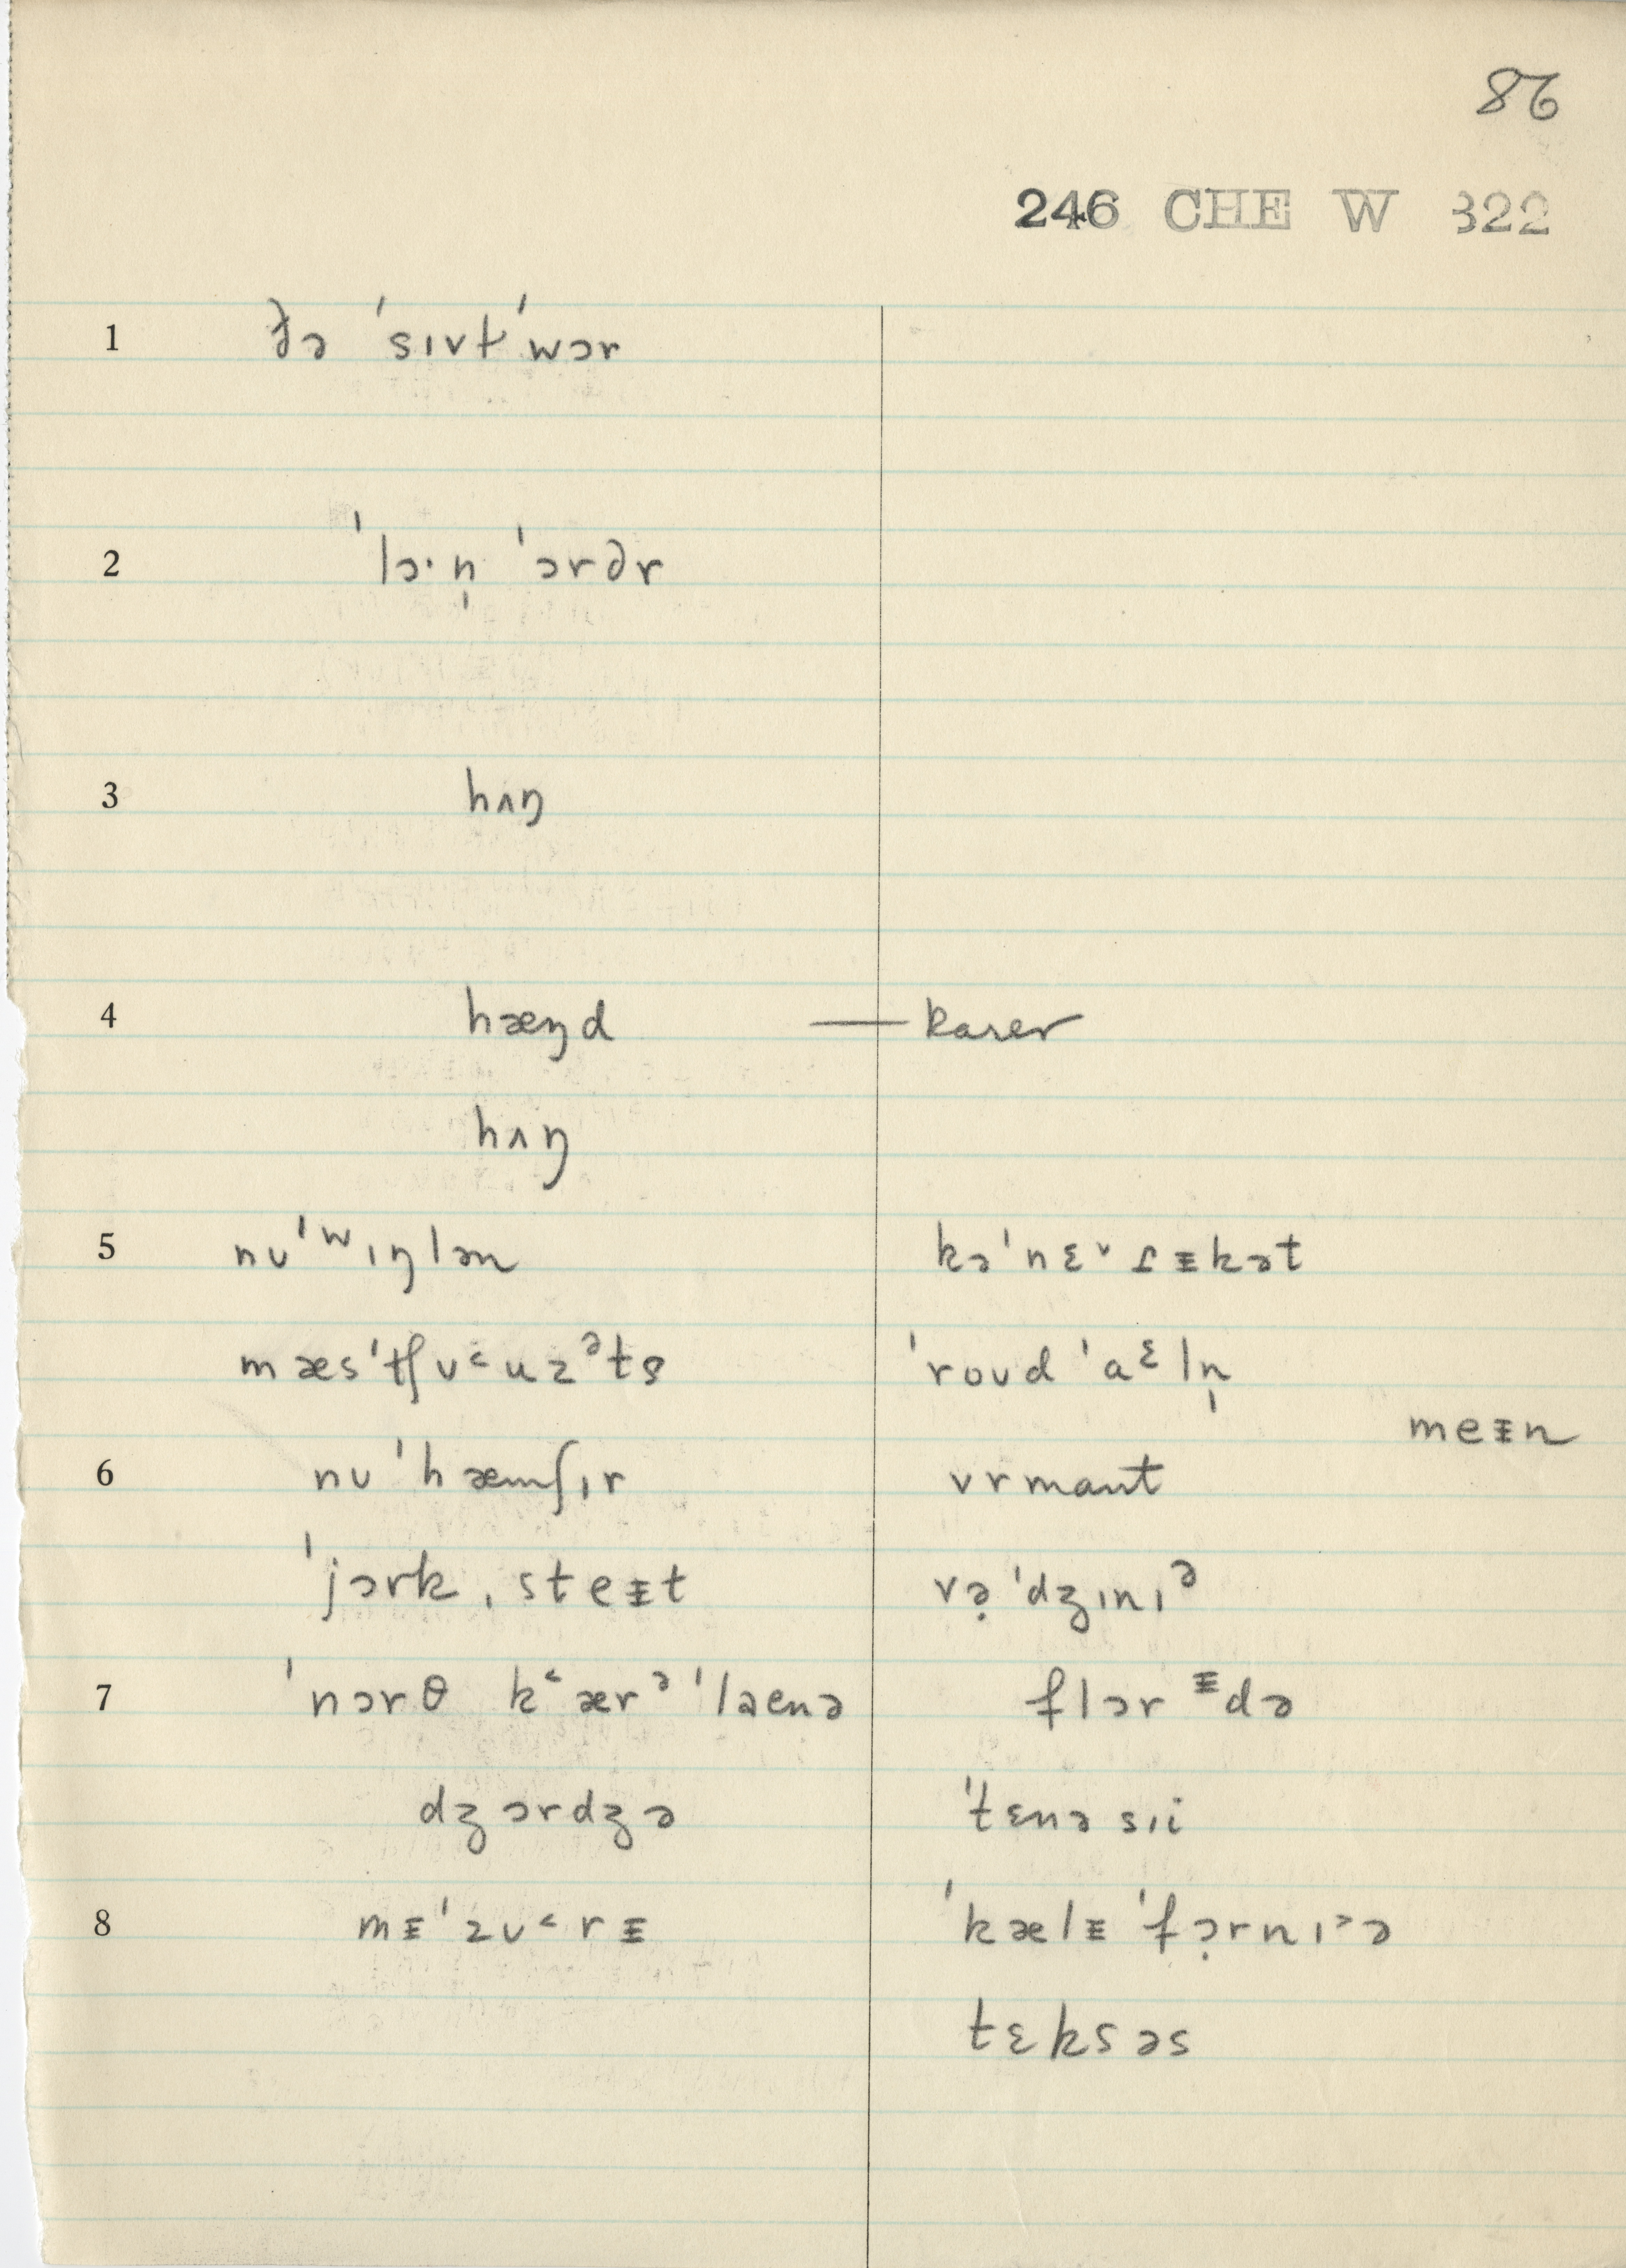 86
246 CHE W 322
1 ðə ˈsɪvɫˈwɔr
2 ˈlɔ·n̩ ˈɔrdər
3 hʌŋ
4 hæŋd — rarer
hʌŋ
5 nuˈʷɪŋlən kəˈnɛᵛɾᵻkət
mæsˈtʃʊ˂uzᵊts ˈroʊd ˈaᵋln̩
meᵻn
6 nuˈhæmʃɪr vrmant
ˈjɔrkˌsteᵻt və̣ˈdʒɪnɪᵊ
7 ˈnɔrθ k˂ærᵊˈlaenə flɔrᵻdə
dʒɔrdʒə ˈtɛnəsɪi
8 mᵻˈzʊ˂rᵻ ˈkælᵻˈfɔ̣rnɪ˃ə
tɛksəs